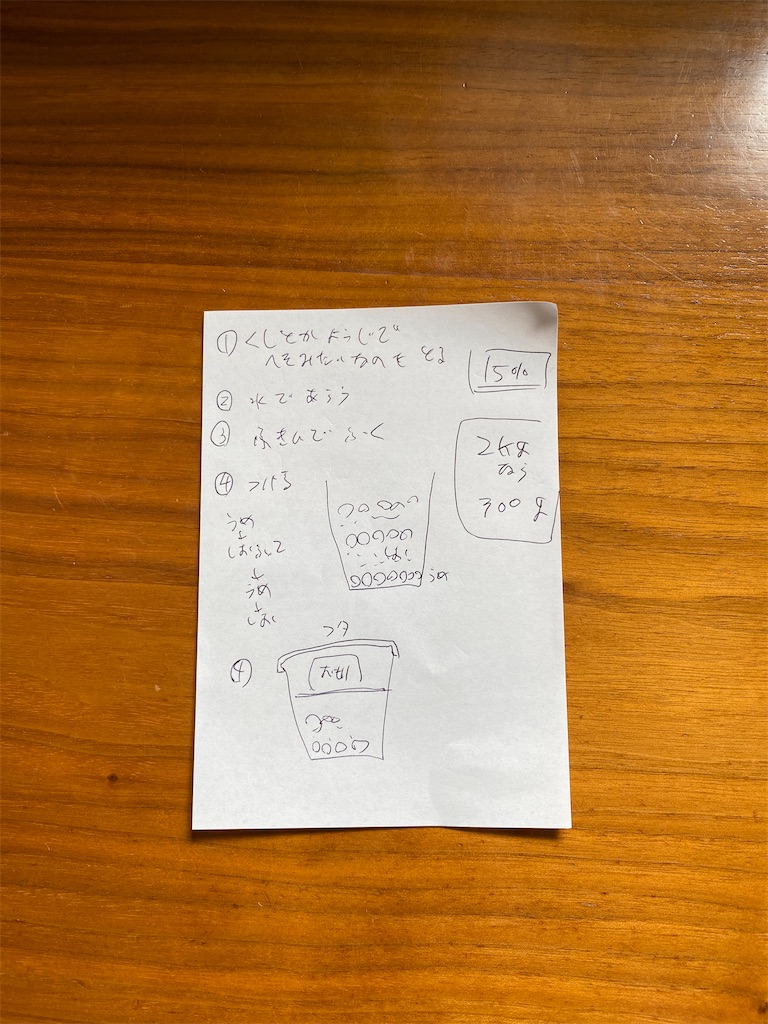 ① くしとかようじで
へそみたいなのをとる
15%
② 水であらう
③ ふきんでふく
2kg
なら
300g
④ つける
うめ
↓
しおふって
↓
うめ
↓
しお
しお
うめ
フタ
④
おもし